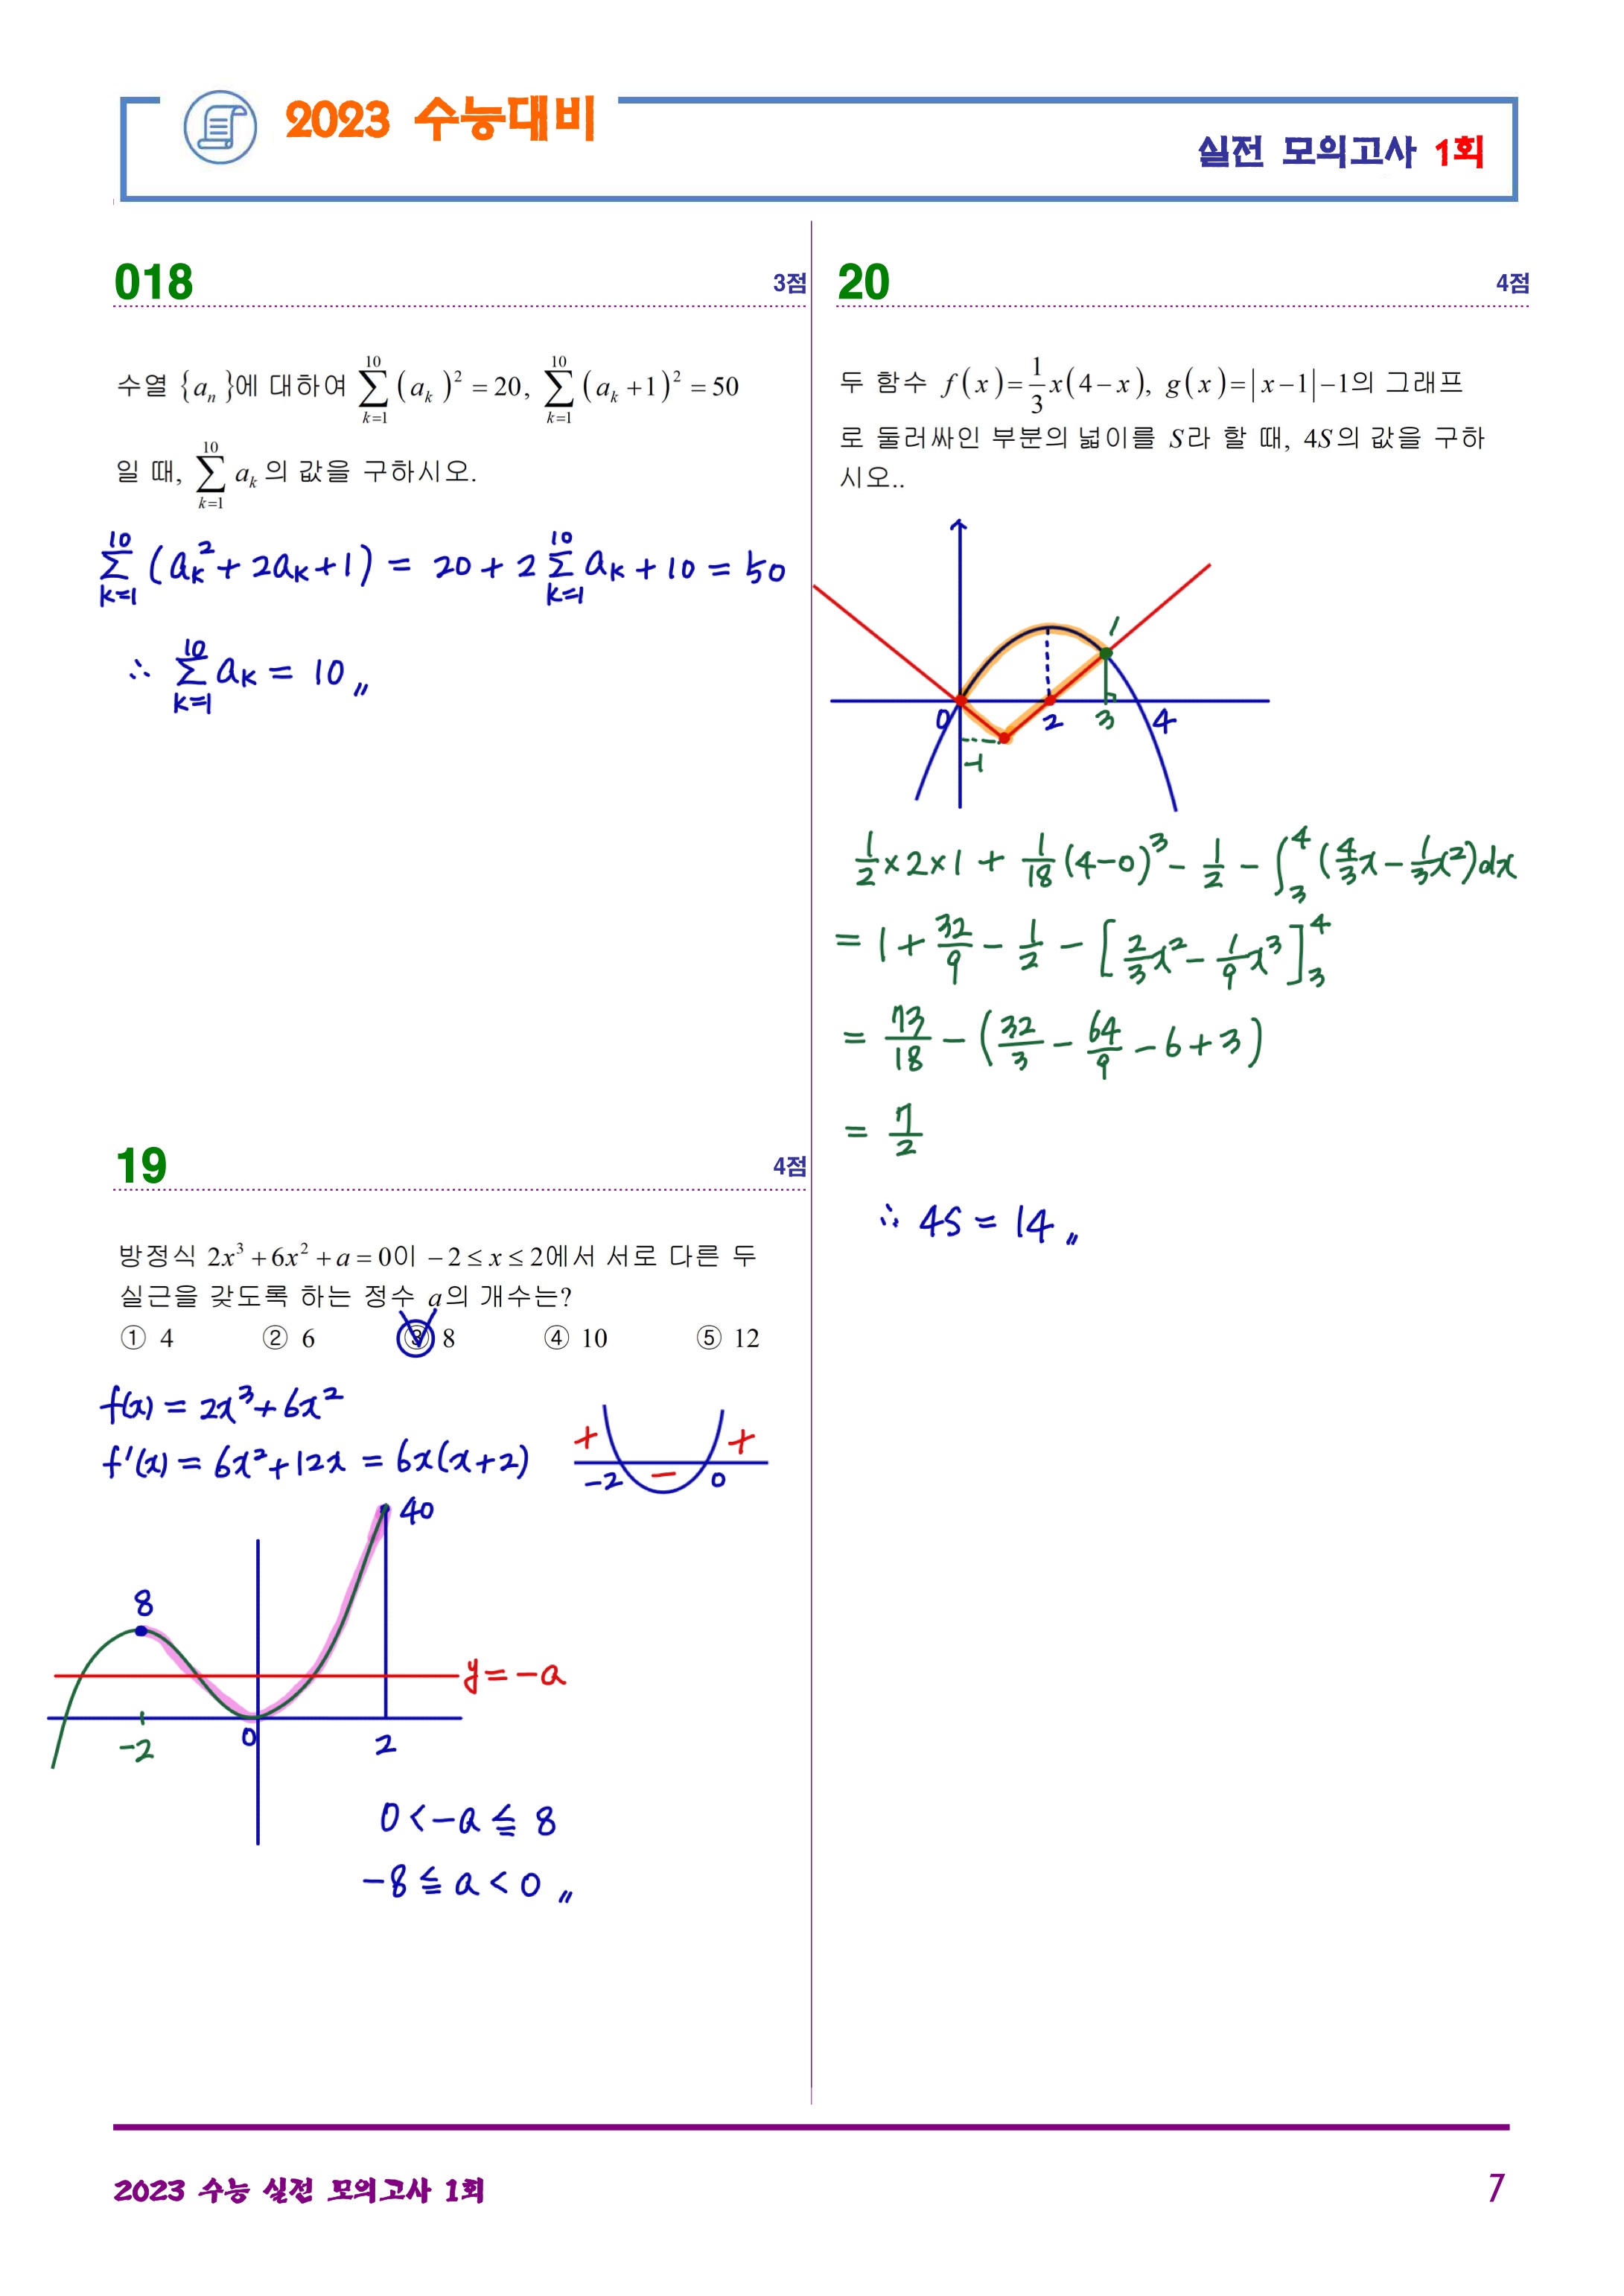 2023 수능대비
실전 모의고사 1회
018 3점
수열 {aₙ}에 대하여 ∑_{k=1}^{10} (aₖ)² = 20, ∑_{k=1}^{10} (aₖ+1)² = 50
일 때, ∑_{k=1}^{10} aₖ 의 값을 구하시오.
∑_{k=1}^{10} (aₖ² + 2aₖ + 1) = 20 + 2∑_{k=1}^{10} aₖ + 10 = 50
∴ ∑_{k=1}^{10} aₖ = 10 〃
19 4점
방정식 2x³+6x²+a=0이 −2≤x≤2에서 서로 다른 두
실근을 갖도록 하는 정수 a의 개수는?
① 4 ② 6 ③ 8 ④ 10 ⑤ 12
f(x) = 2x³+6x²
f'(x) = 6x²+12x = 6x(x+2)
+ − +
−2 0
40
8
y=−a
−2 0 2
0 < −a ≦ 8
−8 ≦ a < 0 〃
20 4점
두 함수 f(x)=1/3 x(4−x), g(x)=|x−1|−1의 그래프
로 둘러싸인 부분의 넓이를 S라 할 때, 4S의 값을 구하
시오..
1
0 2 3 4
−1
1/2×2×1 + 1/18(4−0)³ − 1/2 − ∫₃⁴(4/3x − 1/3x²)dx
= 1 + 32/9 − 1/2 − [2/3x² − 1/9x³]₃⁴
= 73/18 − (32/3 − 64/9 − 6 + 3)
= 7/2
∴ 4S = 14 〃
2023 수능 실전 모의고사 1회
7